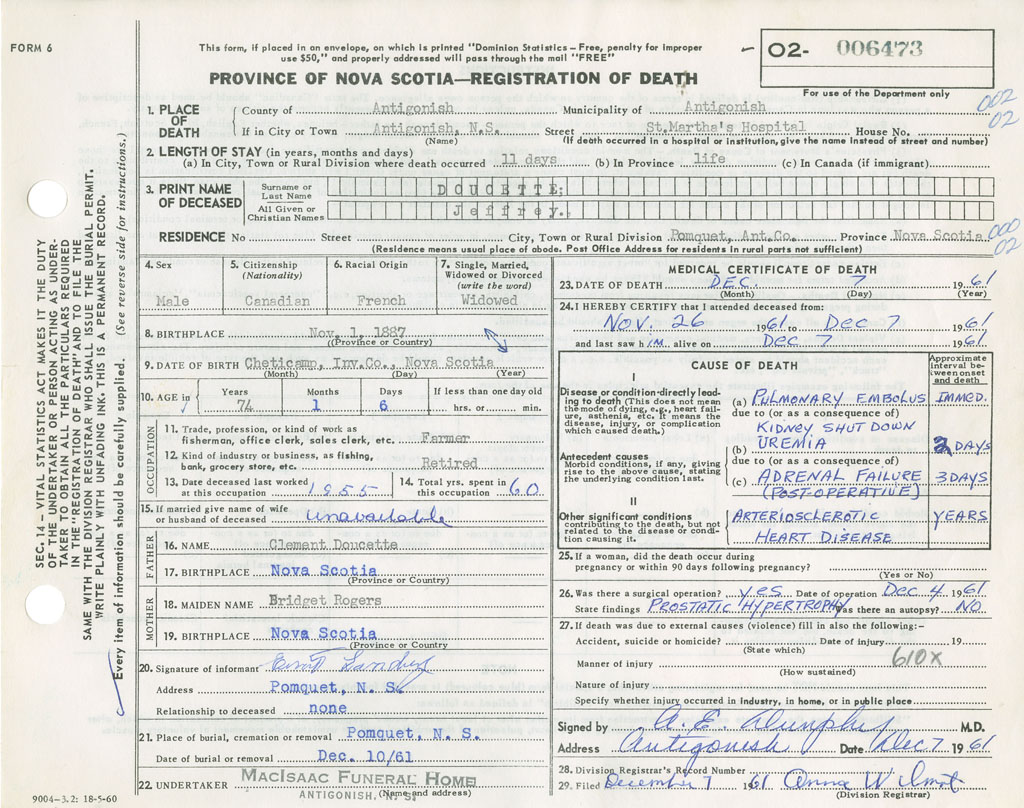 FORM 6
This form, if placed in an envelope, on which is printed "Dominion Statistics – Free, penalty for improper
use $50," and properly addressed will pass through the mail "FREE"
02- 006473
For use of the Department only
PROVINCE OF NOVA SCOTIA—REGISTRATION OF DEATH
002
02
1. PLACE OF DEATH
County of Antigonish Municipality of Antigonish
If in City or Town Antigonish, N.S. Street St.Martha's Hospital House No.
(Name) (If death occurred in a hospital or institution, give the name instead of street and number)
2. LENGTH OF STAY (in years, months and days)
(a) In City, Town or Rural Division where death occurred 11 days (b) In Province life (c) In Canada (if immigrant)
3. PRINT NAME OF DECEASED
Surname or Last Name DOUCETTE;
All Given or Christian Names Jeffrey.
000
02
RESIDENCE No Street City, Town or Rural Division Pomquet, Ant.Co. Province Nova Scotia
(Residence means usual place of abode. Post Office Address for residents in rural parts not sufficient)
4. Sex Male
5. Citizenship (Nationality) Canadian
6. Racial Origin French
7. Single, Married, Widowed or Divorced (write the word) Widowed
8. BIRTHPLACE Nov. 1, 1887
(Province or Country)
9. DATE OF BIRTH Cheticamp, Inv.Co., Nova Scotia
(Month) (Day) (Year)
10. AGE in Years 74 Months 1 Days 6 If less than one day old hrs. or min.
OCCUPATION
11. Trade, profession or kind of work as
fisherman, office clerk, sales clerk, etc. Farmer
12. Kind of industry or business, as fishing,
bank, grocery store, etc. Retired
13. Date deceased last worked at this occupation 1955
14. Total yrs. spent in this occupation 60
15. If married give name of wife
or husband of deceased unavailable
FATHER
16. NAME Clement Doucette
17. BIRTHPLACE Nova Scotia
(Province or Country)
MOTHER
18. MAIDEN NAME Bridget Rogers
19. BIRTHPLACE Nova Scotia
(Province or Country
20. Signature of informant
Address Pomquet, N. S.
Relationship to deceased none
21. Place of burial, cremation or removal Pomquet, N. S.
Date of burial or removal Dec. 10/61
22. UNDERTAKER MacIsaac Funeral Home
ANTIGONISH, N. S.
(Name and address)
MEDICAL CERTIFICATE OF DEATH
23. DATE OF DEATH DEC. 7 1961
(Month) (Day) (Year)
24. I HEREBY CERTIFY that I attended deceased from:
NOV. 26 1961 to Dec 7 1961
and last saw him alive on Dec 7 1961.
CAUSE OF DEATH
Approximate interval between onset and death
I
Disease or condition directly leading to death (This does not mean the mode of dying, e.g., heart failure, asthenia, etc. It means the disease, injury, or complication which caused death.)
(a) PULMONARY EMBOLUS IMMED.
due to (or as a consequence of)
KIDNEY SHUT DOWN
(b) UREMIA 2 DAYS
due to (or as a consequence of)
Antecedent causes
Morbid conditions, if any, giving rise to the above cause, stating the underlying condition last.
(c) ADRENAL FAILURE 3 DAYS
(POST-OPERATIVE)
II
Other significant conditions
contributing to the death, but not related to the disease or condition causing it.
ARTERIOSCLEROTIC YEARS
HEART DISEASE
25. If a woman, did the death occur during
pregnancy or within 90 days following pregnancy?
(Yes or No)
26. Was there a surgical operation? yes Date of operation Dec 4 1961
State findings PROSTATIC HYPERTROPHY Was there an autopsy? NO
27. If death was due to external causes (violence) fill in also the following:–
Accident, suicide or homicide? Date of injury 19
(State which)
610X
Manner of injury
(How sustained)
Nature of injury
Specify whether injury occurred in industry, in home, or in public place
Signed by A. E. Dunphy M.D.
Address Antigonish Date Dec 7 1961
28. Division Registrar's Record Number
29. Filed December 7 1961 Anna Wilmot
(Division Registrar)
SEC. 14 – VITAL STATISTICS ACT MAKES IT THE DUTY
OF THE UNDERTAKER OR PERSON ACTING AS UNDER-
TAKER TO OBTAIN ALL THE PARTICULARS REQUIRED
IN THE "REGISTRATION OF DEATH" AND TO FILE THE
SAME WITH THE DIVISION REGISTRAR WHO SHALL ISSUE THE BURIAL PERMIT.
WRITE PLAINLY WITH UNFADING INK. THIS IS A PERMANENT RECORD.
Every item of information should be carefully supplied. (See reverse side for instructions.)
9004–3.2: 18-5-60